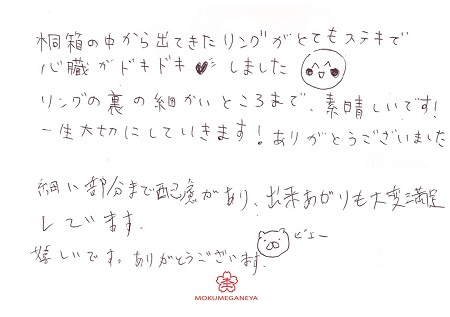 桐箱の中から出てきたリングがとてもステキで
心臓がドキドキしました
リングの裏の細かいところまで、素晴しいです!
一生大切にしていきます!ありがとうございました
細い部分まで配慮があり、出来あがりも大変満足
しています。
嬉しいです。ありがとうございます。
ビエー
MOKUMEGANEYA